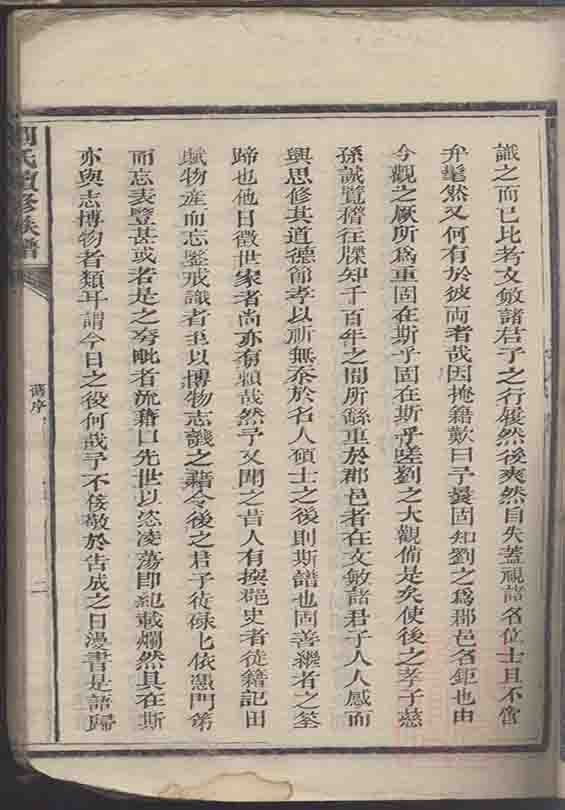 識之而已比考文敏諸君子之行履然後爽然自失蓋視諸名位士且不啻
弁髦然又何有於彼兩者哉因掩籍歎曰予曩固知劉之爲郡邑名鉅也由
今觀之厥所爲重固在斯乎固在斯乎嗟劉之大觀備是矣使後之孝子慈
孫誠覽稽往牒知千百年之間所繇重於郡邑者在文敏諸君子人人感而
興思修其道德節孝以祈無忝於名人碩士之後則斯譜也固善繼者之筌
蹄也他日徵世家者尚亦有賴哉然予又聞之昔人有撰郡史者徒籍記田
賦物產而忘鑒戒識者至以博物志譏之藉令後之君子徒碌匕依憑門第
而忘表豎甚或者是之夸毗者流藉口先世以恣凌蕩即紀載爛然具在斯
亦與志博物者類耳謂今日之役何哉予不佞敬於告成之日漫書是語歸
氏重修族譜
舊序
二